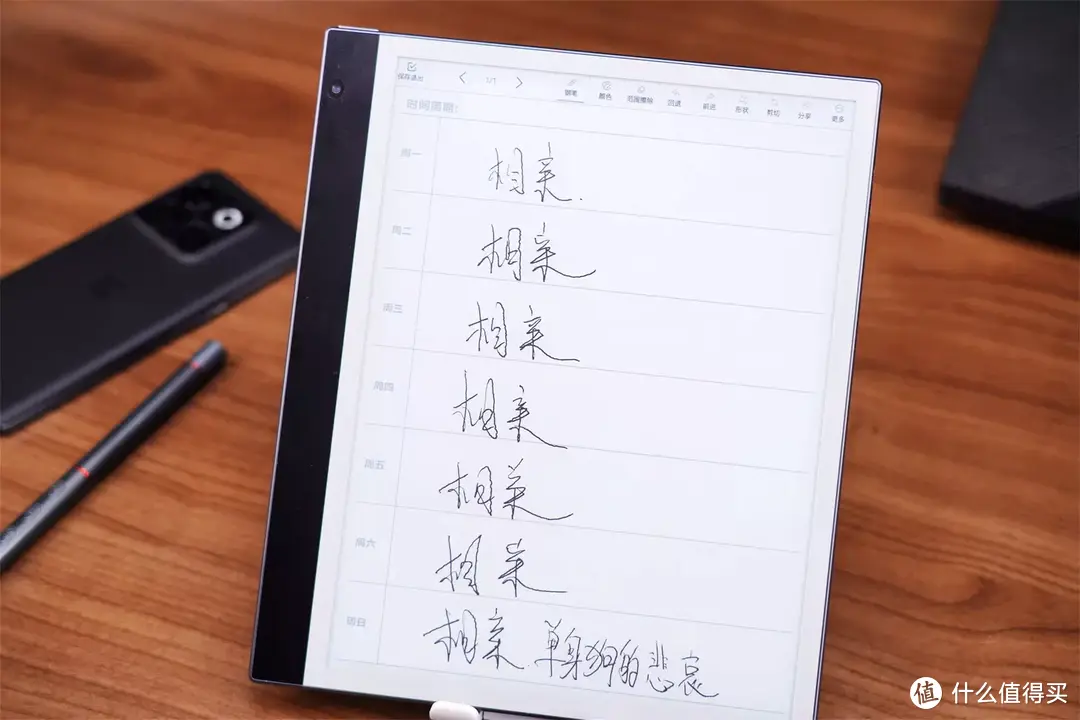 保存退出 1/1 钢笔 颜色 范围擦除 回退 前进 形状 剪切 分享 更多
时间周期:
周一 相亲.
周二 相亲
周三 相亲
周四 相亲
周五 相亲
周六 相亲
周日 相亲. 单身狗的悲哀
值 什么值得买